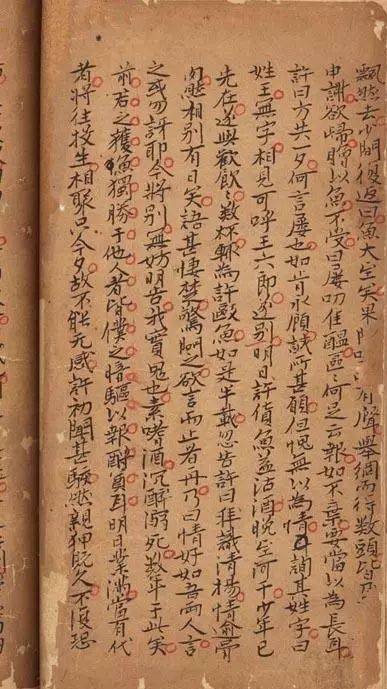 飄然去少間復返曰魚大至矣果有聲舉網而得數頭皆
申謝欲歸贈以魚不受曰屢叨佳醞區=何足云報如不棄要當以為長耳
許曰方共一夕何言屢也如肯永顧誠所甚願但愧無以為情詢其姓字曰
姓王無字相見可呼王六郎遂別明日許貨魚益沽酒晚至河干少年已
先在遂與歡飲=數杯輒為許敺魚如是半載忽告許曰拜識清揚情逾骨
肉然相別有日矣語甚悽楚驚問之欲言而止者再乃曰情好如吾兩人言
之或勿訝耶今將別無妨明告我實鬼也素嗜酒沉醉溺死數年于此矣
前君之獲漁獨勝于他人者皆僕之暗驅以報酹奠耳明日業滿當有代
者將往投生相聚只今夕故不能无感許初聞甚駭然親狎既久不復恐